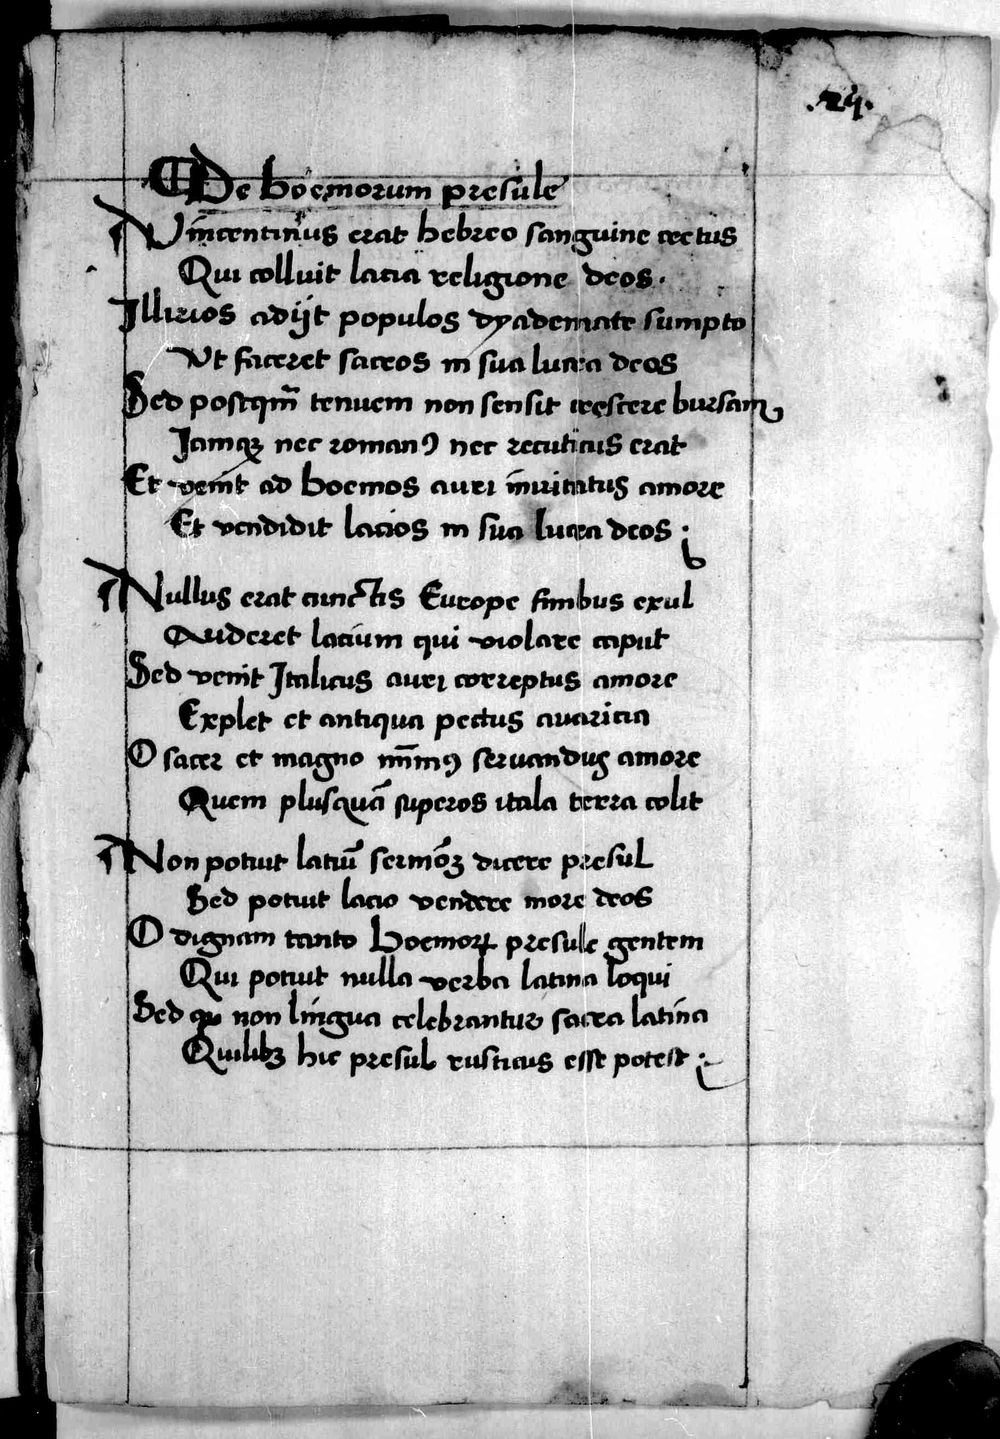 .24.
De boemorum presule
Vincentinus erat hebreo sanguine cretus
Qui colluit lacia religione deos.
Illirios adijt populos dyademate sumpto
Vt faceret sacros in sua lucra deos
Sed postqm̃ tenuem non sensit crescere bursam
Jamqꝫ nec romanꝯ nec recuticus erat
Et venit ad boemos auri inuitatus amore
Et vendidit lacios in sua lucra deos :
Nullus erat cunctis Europe finibus exul
Auderet lacium qui violare caput
Sed venit Italicus auri correptus amore
Explet et antiqua pectus auaricia
O sacer et magno servandus amore
Quem plusquã superos itala terra colit
Non potuit latiũ sermõꝫ dicere presul
Sed potuit lacio vendere more deos
O dignam tanto boemoꝝ presule gentem
Qui potuit nulla verba latina loqui
Sed non lingua celebrantur sacra latina
Quilibꝫ hic presul rusticus esse potest :